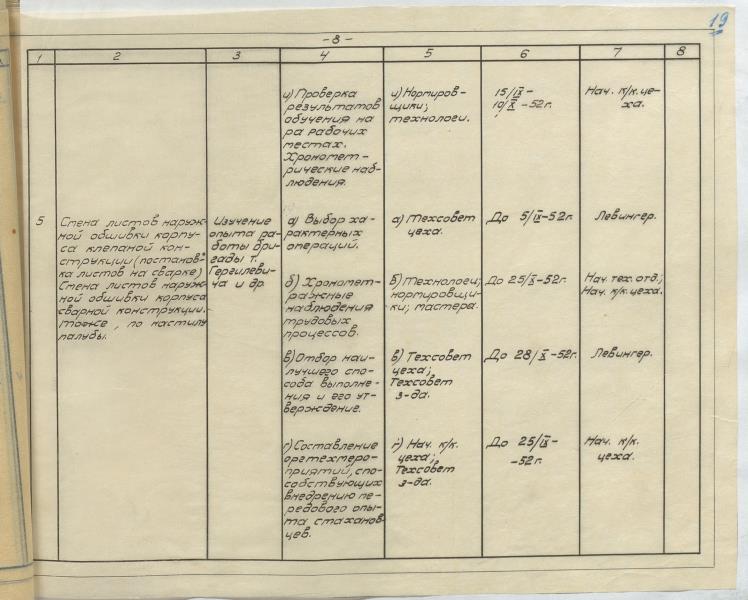 19
-8-
1 2 3 4 5 6 7 8
и) Проверка
результатов
обучения на
ра рабочих
местах.
Хрономет-
рические наб-
людения.
и) Нормиров-
щики;
технологи.
15/IX-
10/X-52г.
Нач. к/к. це-
ха.
5
Смена листов наруж-
ной обшивки корпу-
са клепаной кон-
струкции (постанов-
ка листов на сварке)
Смена листов наруж-
ной обшивки корпуса
сварной конструкции.
тоже, по настилу
палубы.
Изучение
опыта ра-
боты бри-
гады т.
Гергилеви-
ча и др.
а) Выбор ха-
рактерных
операций.
а) Техсовет
цеха.
До 5/IX-52г.
Левингер.
б) Хрономет-
ражные
наблюдения
трудовых
процессов.
б) Технологи;
нормировщи-
ки; мастера.
До 25/X-52г.
Нач. тех. отд.;
Нач. к/к. цеха.
в) Отбор наи-
лучшего спо-
соба выполне-
ния и его ут-
верждение.
в) Техсовет
цеха;
Техсовет
з-да.
До 28/X-52г.
Левингер.
г) Составление
оргтехмеро-
приятий, спо-
собствующих
внедрению пе-
редового опы-
та стаханов-
цев.
г) Нач. к/к.
цеха;
Техсовет
з-да.
До 25/IX-
-52г.
Нач. к/к.
цеха.